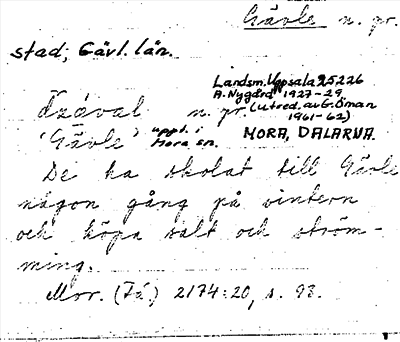 Gävle n. pr.
stad; Gävl. län.
Landsm. Uppsala 25226
A. Nygård 1927-29
n. pr. (utred. av G. Öman
1961-62)
'Gävle' uppt. i
Mora sn. MORA, DALARNA.
De ha skolat till Gävle
någon gång på vintern
och köpa salt och ström-
ming.
Mor. (Få) 2174:20, s. 93.